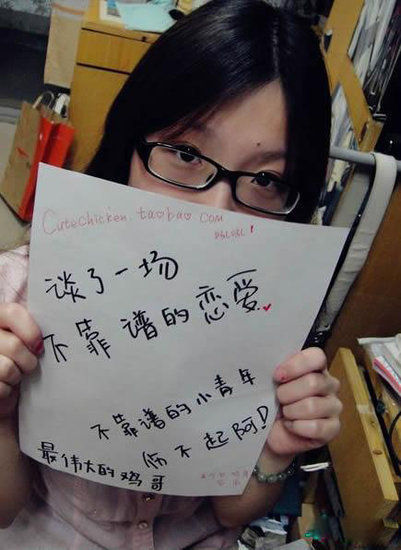 Cutechicken.taobao.com
谈了一场
不靠谱的恋爱
不靠谱的小青年
伤不起阿!
最伟大的鸡哥